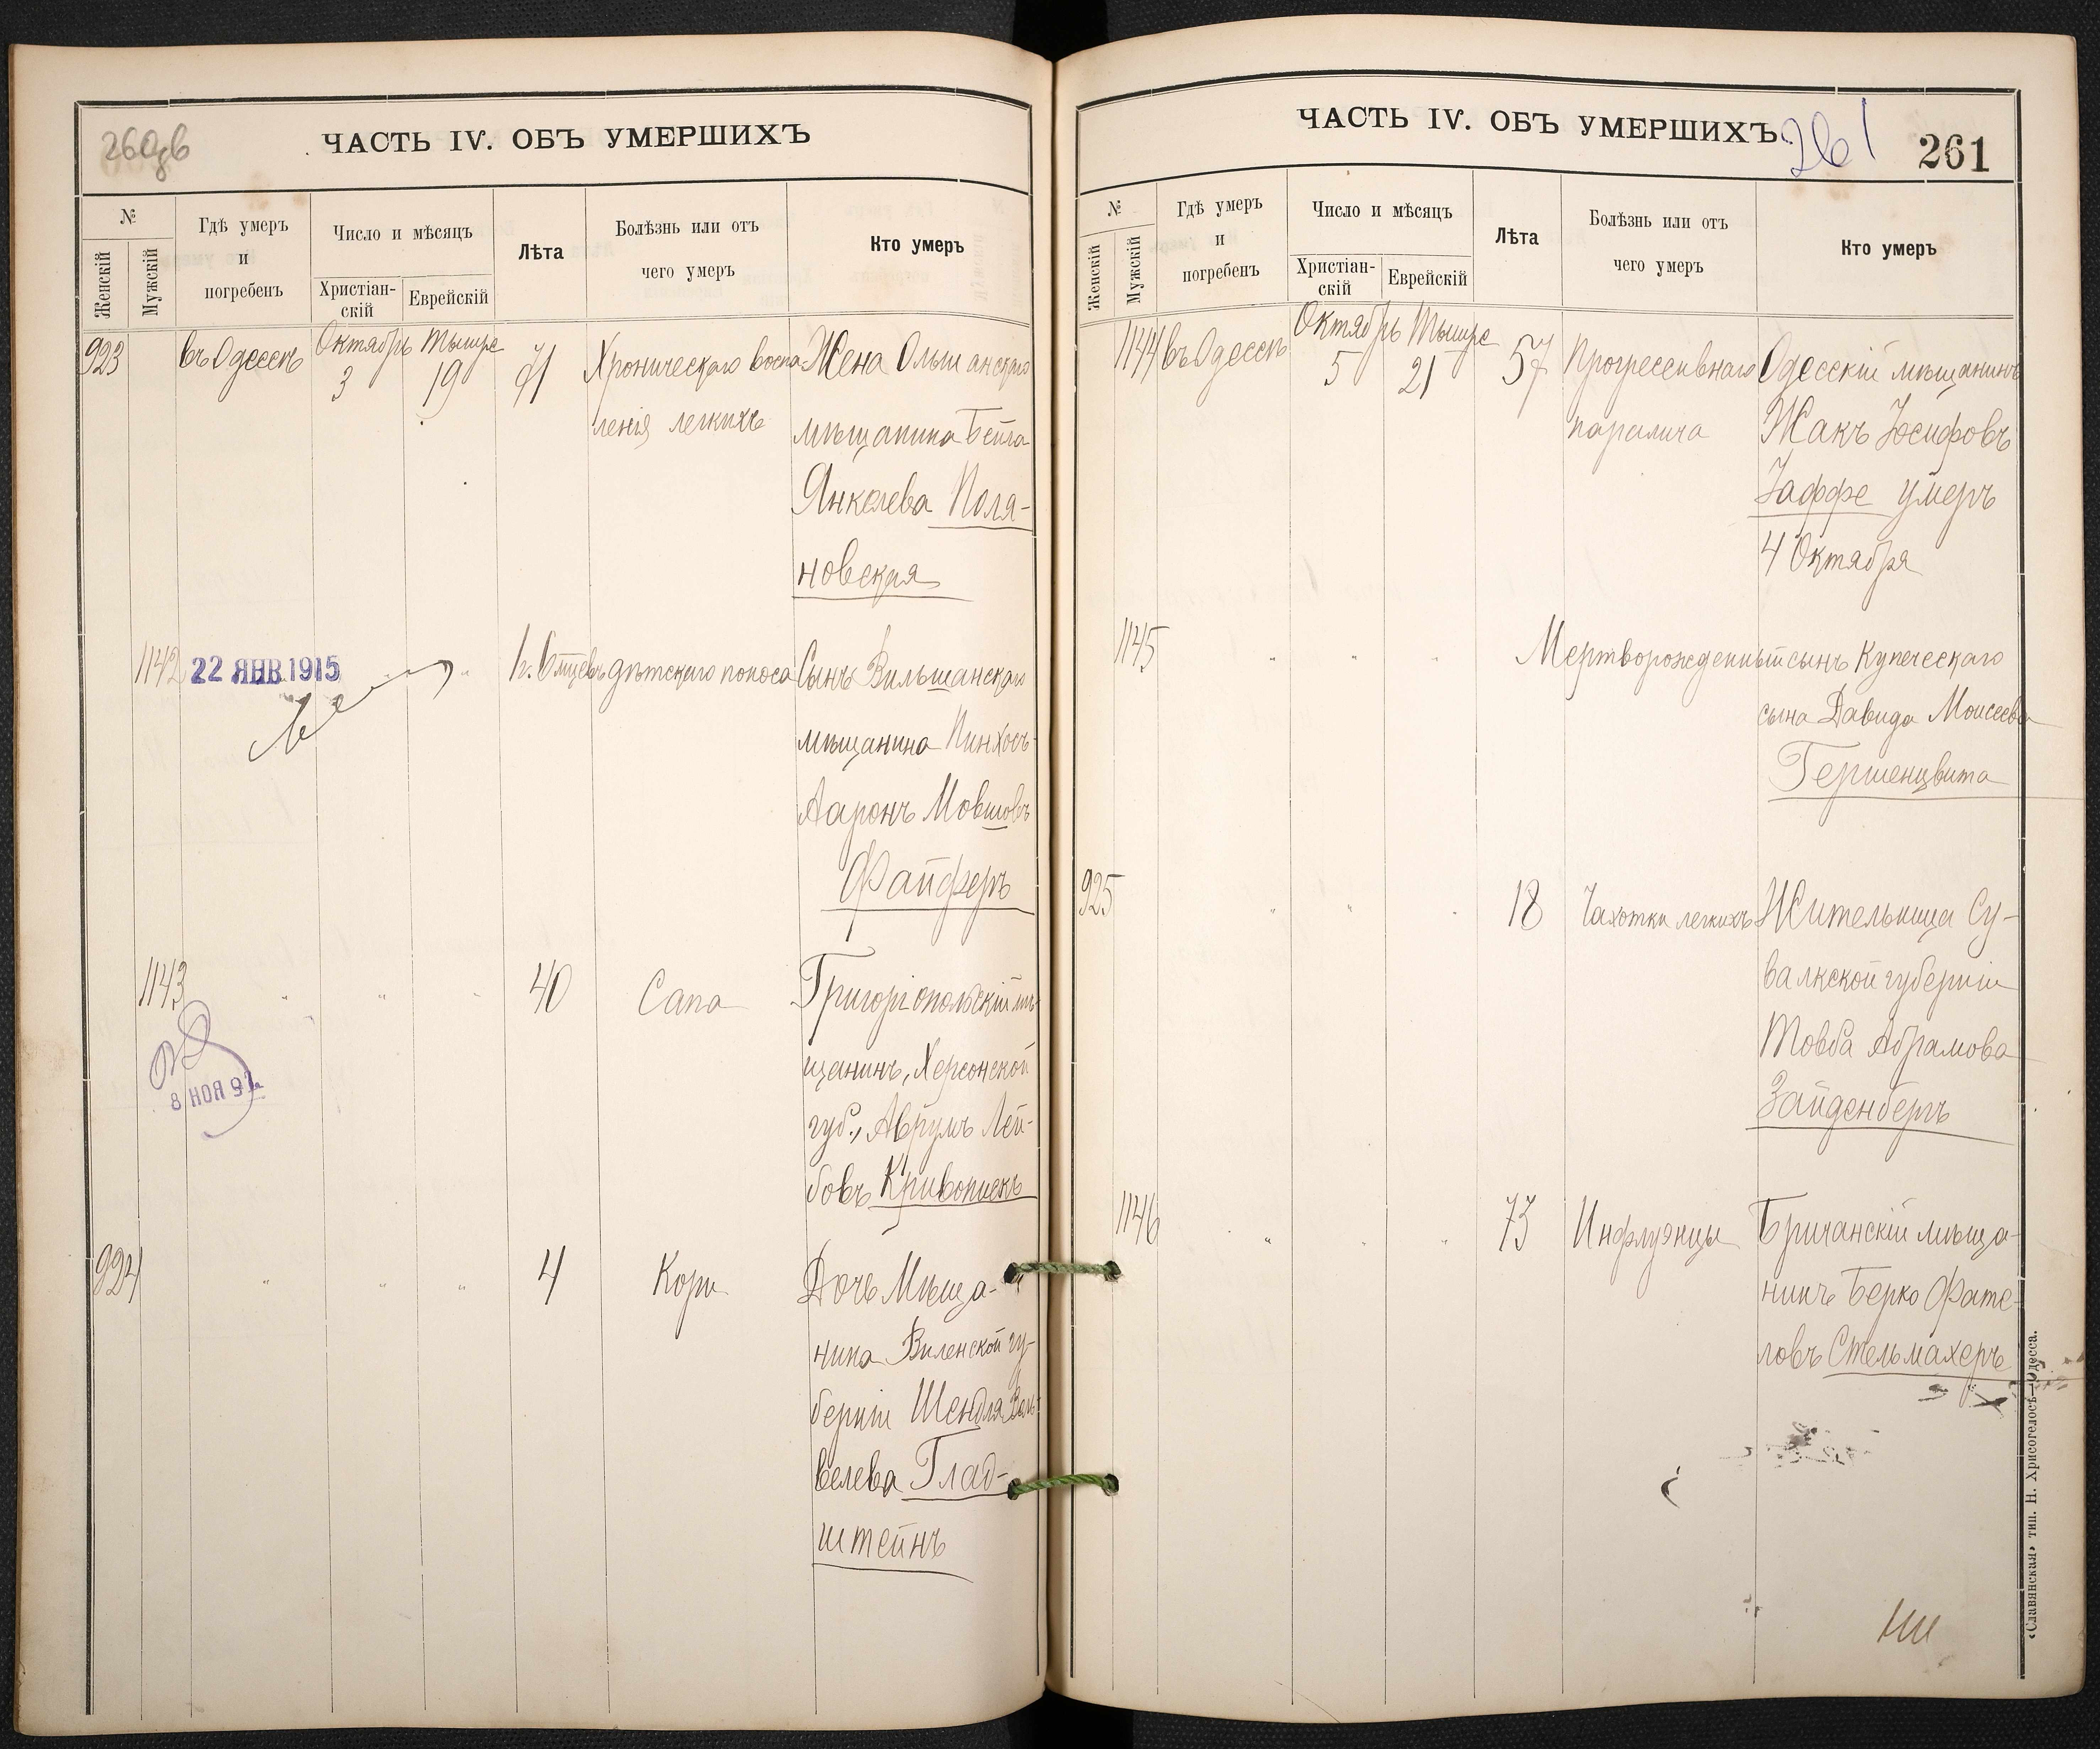 260об
ЧАСТЬ IV. ОБЪ УМЕРШИХЪ
№
Женскій
Мужскій
Гдѣ умеръ
и
погребенъ
Число и мѣсяцъ
Христіан-
скій
Еврейскій
Лѣта
Болѣзнь или отъ
чего умеръ
Кто умеръ
923 въ Одессѣ Октябрь 3 Тышре 19 71 Хроническаго воспа- Жена Ольшанскаго
ленія легкихъ мѣщанина Бейла
Янкелева Поля-
новская
1142 22 ЯНВ 1915 1г. 6 мцевъ дѣтскаго поноса Сынъ Вильшанскаго
мѣщанина Пинхосъ-
Ааронъ Мовшовъ
Файферъ
1143 " " " 40 Сапа Григоріопольскій мѣ-
щанинъ, Херсонской
губ., Аврумъ Лей-
бовъ Кривопискъ
8 НОЯ 9
924 " " " 4 Кори Дочь Мѣща-
нина Виленской гу-
берніи Шендля Воль-
велева Глад-
штейнъ
ЧАСТЬ IV. ОБЪ УМЕРШИХЪ
261
261
№
Женскій
Мужскій
Гдѣ умеръ
и
погребенъ
Число и мѣсяцъ
Христіан-
скій
Еврейскій
Лѣта
Болѣзнь или отъ
чего умеръ
Кто умеръ
1144 въ Одессѣ Октябрь 5 Тышре 21 57 Прогрессивнаго Одесскій мѣщанинъ
паралича Жакъ Іосифовъ
Іаффе умеръ
4 Октября
1145 " " " Мертворожденный сынъ Купеческаго
сына Давида Моисеева
Гершенцвита
925 " " " 18 Чахотки легкихъ Жительница Су-
валкской губерніи
Товба Абрамова
Зайденбергъ
1146 " " " 73 Инфлуэнцы Бричанскій мѣща-
нинъ Берко Фате-
ловъ Стельмахеръ
«Славянская» тип. Н. Хрисогелосъ—Одесса.